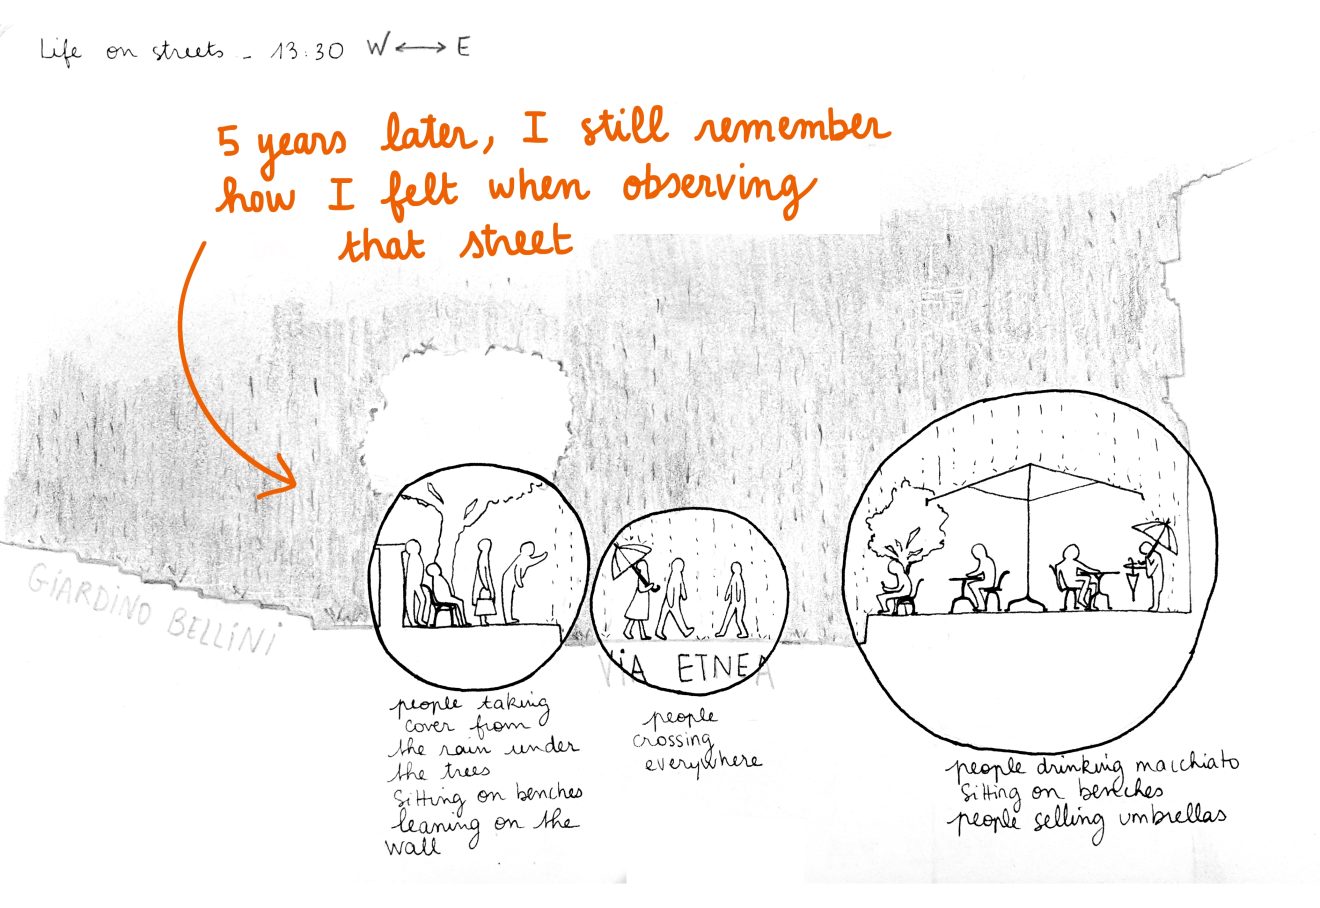 Life on streets - 13:30 W ⟷ E
5 years later, I still remember
how I felt when observing
that street
GIARDINO BELLINI
ViA ETNEA
people taking
cover from
the rain under
the trees
Sitting on benches
leaning on the
wall
people
crossing
everywhere
people drinking macchiato
Sitting on benches
people selling umbrellas